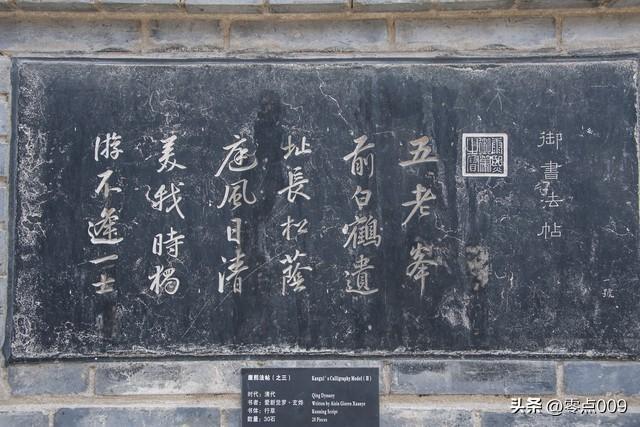 御書法帖
康熙御筆之寶
五老峯
前白鶴遺
址長松蔭
庭風日清
美我時獨
游不逢一士
號
康熙法帖(之三)
Kangxi's Calligraphy Model
时代:清代
Qing Dynasty
书者:爱新觉罗·玄烨
Written by Aisin Gioro Xuanye
书体:行草
Running Script
数量:30石
Pieces
头条 @零点009